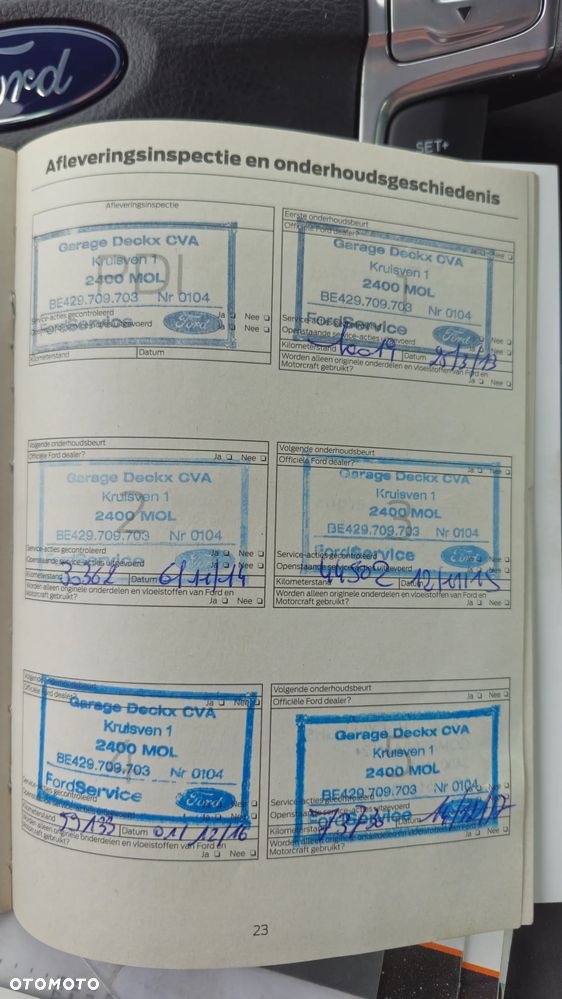 Ford
SET+
Afleveringsinspectie en onderhoudsgeschiedenis
Afleveringsinspectie
Garage Deckx CVA
Kruisven 1
2400 MOL
BE429.709.703 Nr 0104
Service-acties gecontroleerd Ja Nee
FordService Ford
Ja Nee
Kilometerstand Datum
Eerste onderhoudsbeurt
Officiële Ford dealer? Ja Nee
Garage Deckx CVA
Kruisven 1
2400 MOL
BE429.709.703 Nr 0104
FordService Ford
Openstaande service-acties uitgevoerd Ja Nee
Kilometerstand Datum 28/3/13
Worden alleen originele onderdelen en vloeistoffen van Ford en
Motorcraft gebruikt? Ja Nee
Volgende onderhoudsbeurt
Officiële Ford dealer? Ja Nee
Garage Deckx CVA
Kruisven 1
2400 MOL
2
BE429.709.703 Nr 0104
Service-acties gecontroleerd Ja Nee
Openstaande service-acties uitgevoerd Ja Nee
Kilometerstand 30362 Datum 6/11/14
Worden alleen originele onderdelen en vloeistoffen van Ford en
Motorcraft gebruikt? Ja Nee
Volgende onderhoudsbeurt
Officiële Ford dealer? Ja Nee
Garage Deckx CVA
Kruisven 1
2400 MOL
3
BE429.709.703 Nr 0104
Service-acties gecontroleerd Ja Nee
FordService Ford
Openstaande service-acties uitgevoerd Ja Nee
Kilometerstand Datum 12/11/15
Worden alleen originele onderdelen en vloeistoffen van Ford en
Motorcraft gebruikt? Ja Nee
Volgende onderhoudsbeurt
Officiële Ford dealer? Ja Nee
Garage Deckx CVA
Kruisven 1
2400 MOL
4
BE429.709.703 Nr 0104
FordService Ford
Kilometerstand 59133 Datum 01/12/16
Worden alleen originele onderdelen en vloeistoffen van Ford en
Motorcraft gebruikt? Ja Nee
Volgende onderhoudsbeurt
Officiële Ford dealer? Ja Nee
Garage Deckx CVA
Kruisven 1
2400 MOL
BE429.709.703 Nr 0104
Service-acties gecontroleerd
Openstaande service-acties uitgevoerd Ja Nee
Kilometerstand Datum
Worden alleen originele onderdelen en vloeistoffen van Ford en
Motorcraft gebruikt? Ja Nee
23
OTOMOTO